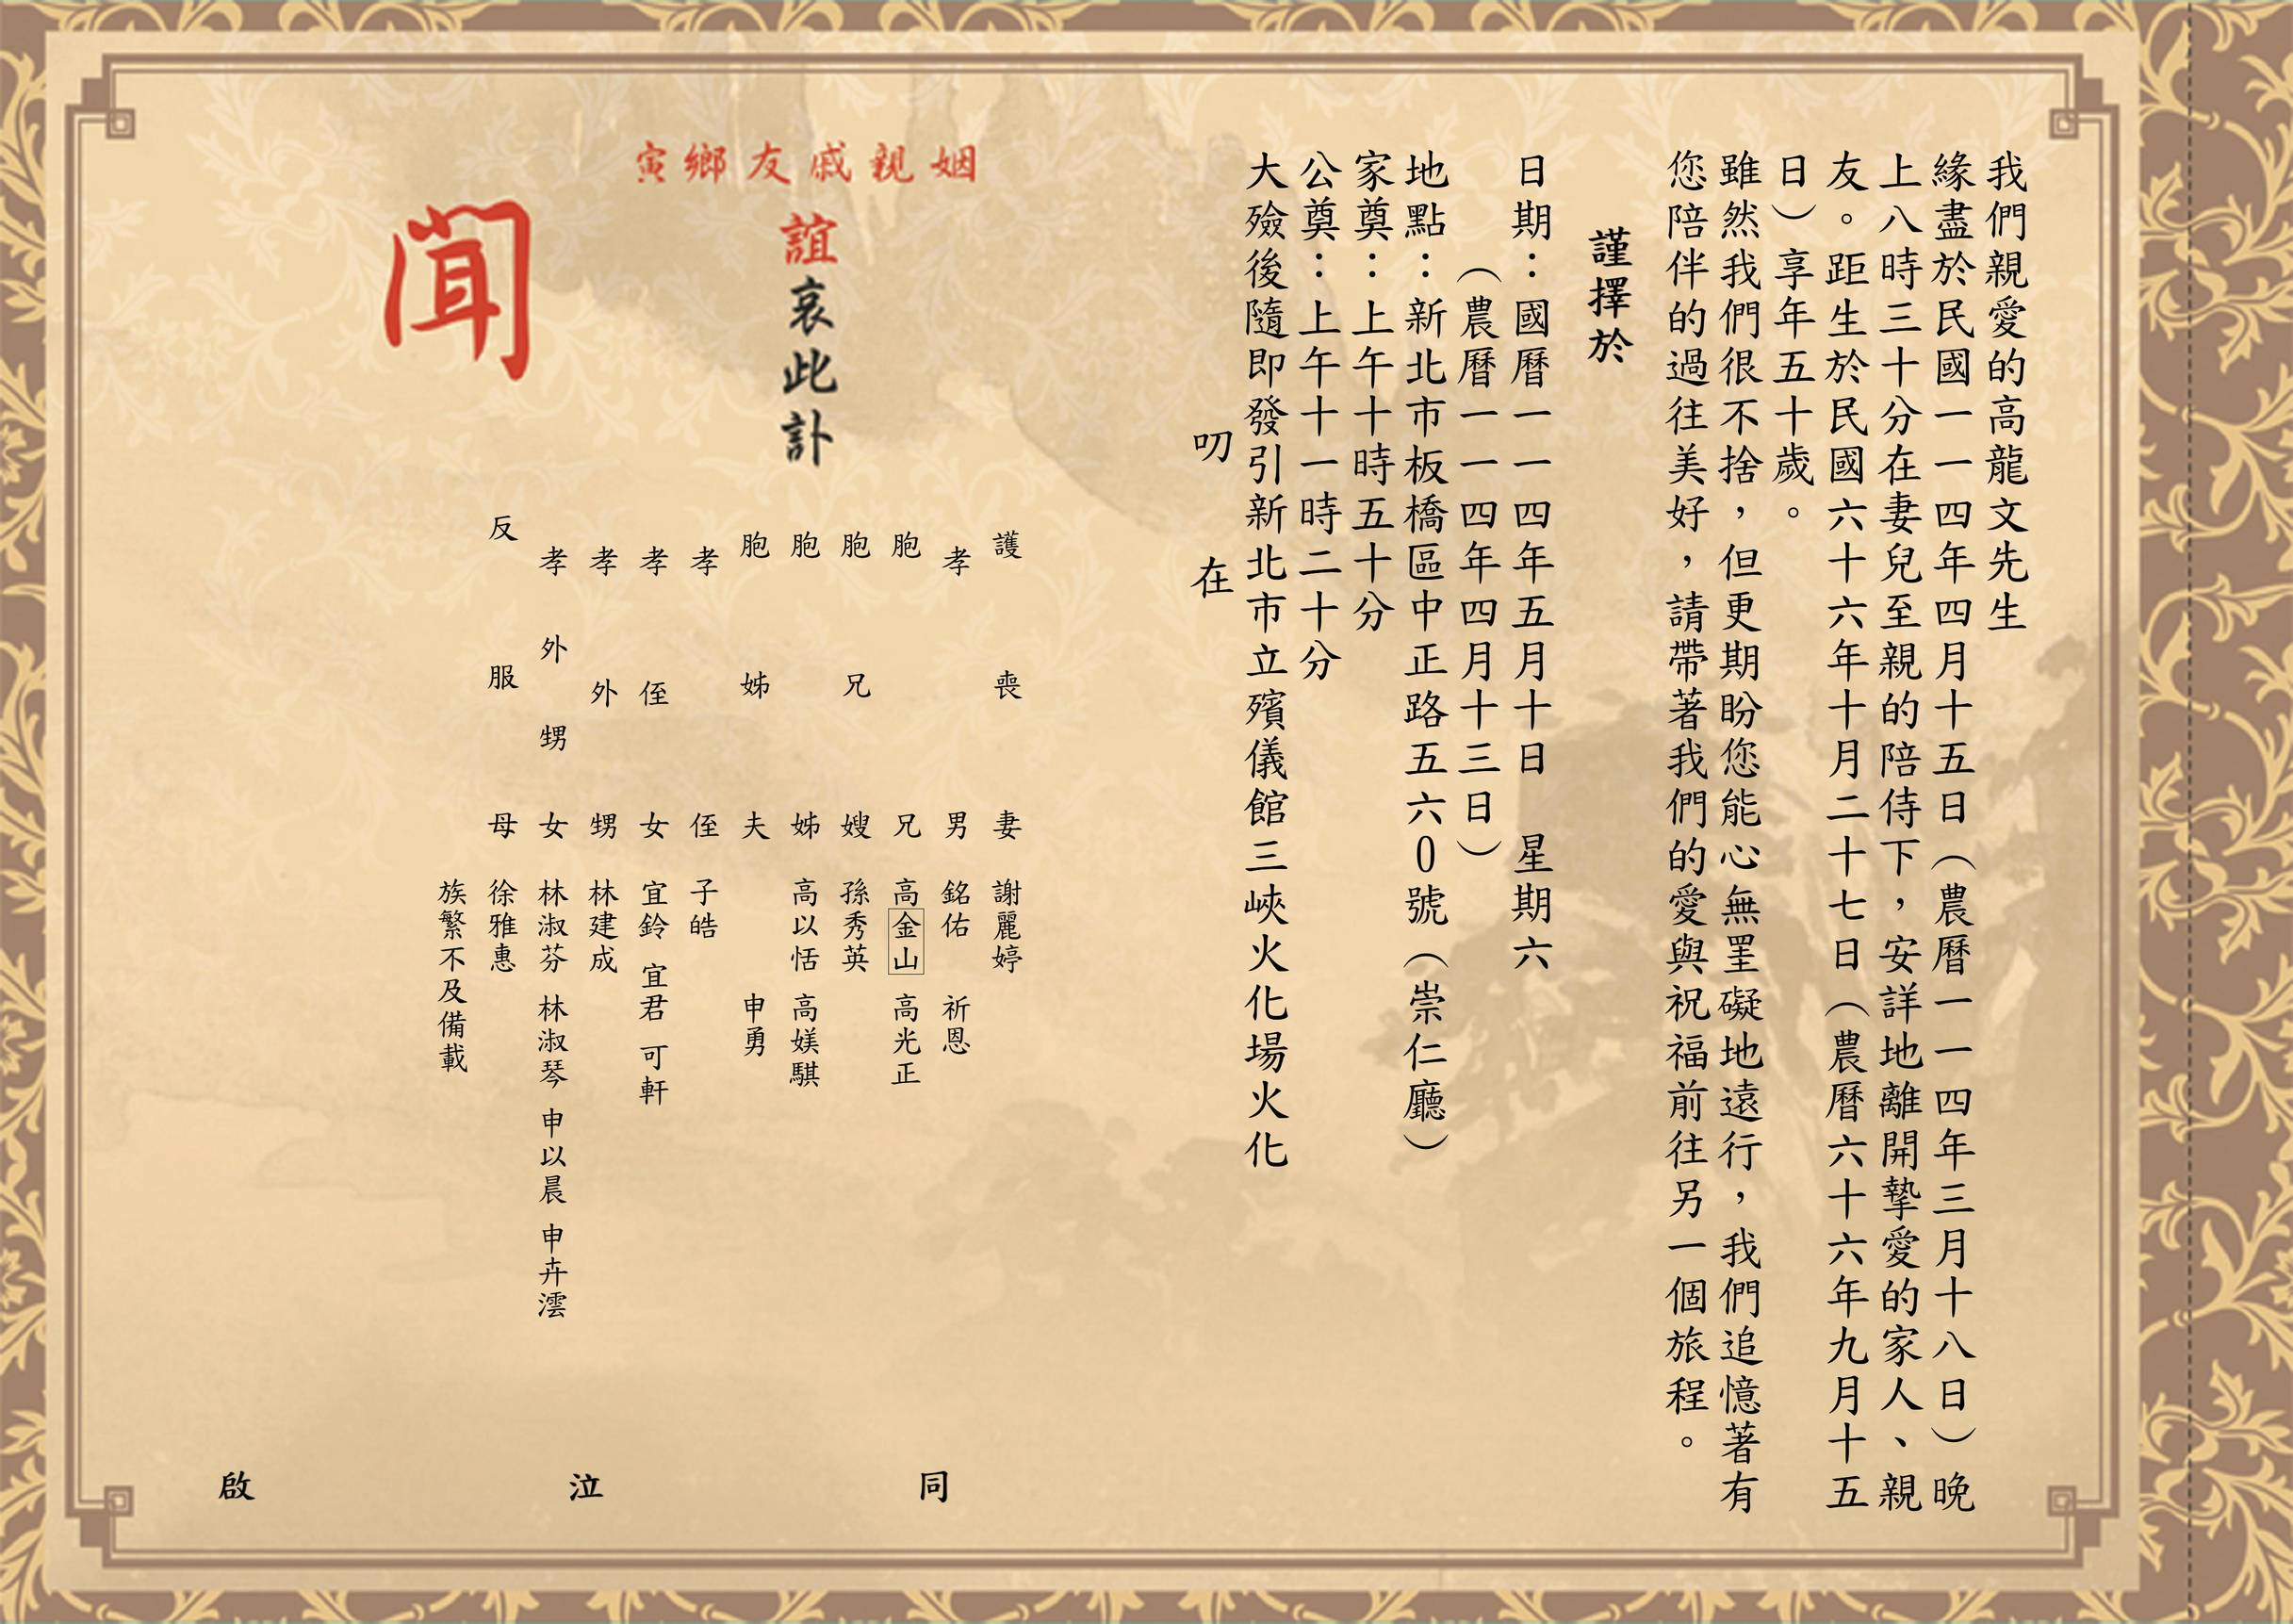 我們親愛的高龍文先生
緣盡於民國一一四年四月十五日（農曆一一四年三月十八日）晚
上八時三十分在妻兒至親的陪侍下，安詳地離開摯愛的家人、親
友。距生於民國六十六年十月二十七日（農曆六十六年九月十五
日）享年五十歲。
雖然我們很不捨，但更期盼您能心無罣礙地遠行，我們追憶著有
您陪伴的過往美好，請帶著我們的愛與祝福前往另一個旅程。
謹擇於
日期：國曆一一四年五月十日 星期六
（農曆一一四年四月十三日）
地點：新北市板橋區中正路五六0號（崇仁廳）
家奠：上午十時五十分
公奠：上午十一時二十分
大殮後隨即發引新北市立殯儀館三峽火化場火化
叨在
姻親戚友鄉寅
誼哀此訃
聞
護喪妻 謝麗婷
孝男 銘佑 祈恩
胞兄 高金山 高光正
胞兄嫂 孫秀英
胞姊 高以恬 高媄騏
胞姊夫 申勇
孝侄 子皓
孝侄女 宜鈴 宜君 可軒
孝外甥 林建成
孝外甥女 林淑芬 林淑琴 申以晨 申卉澐
反服母 徐雅惠
族繁不及備載
同泣啟